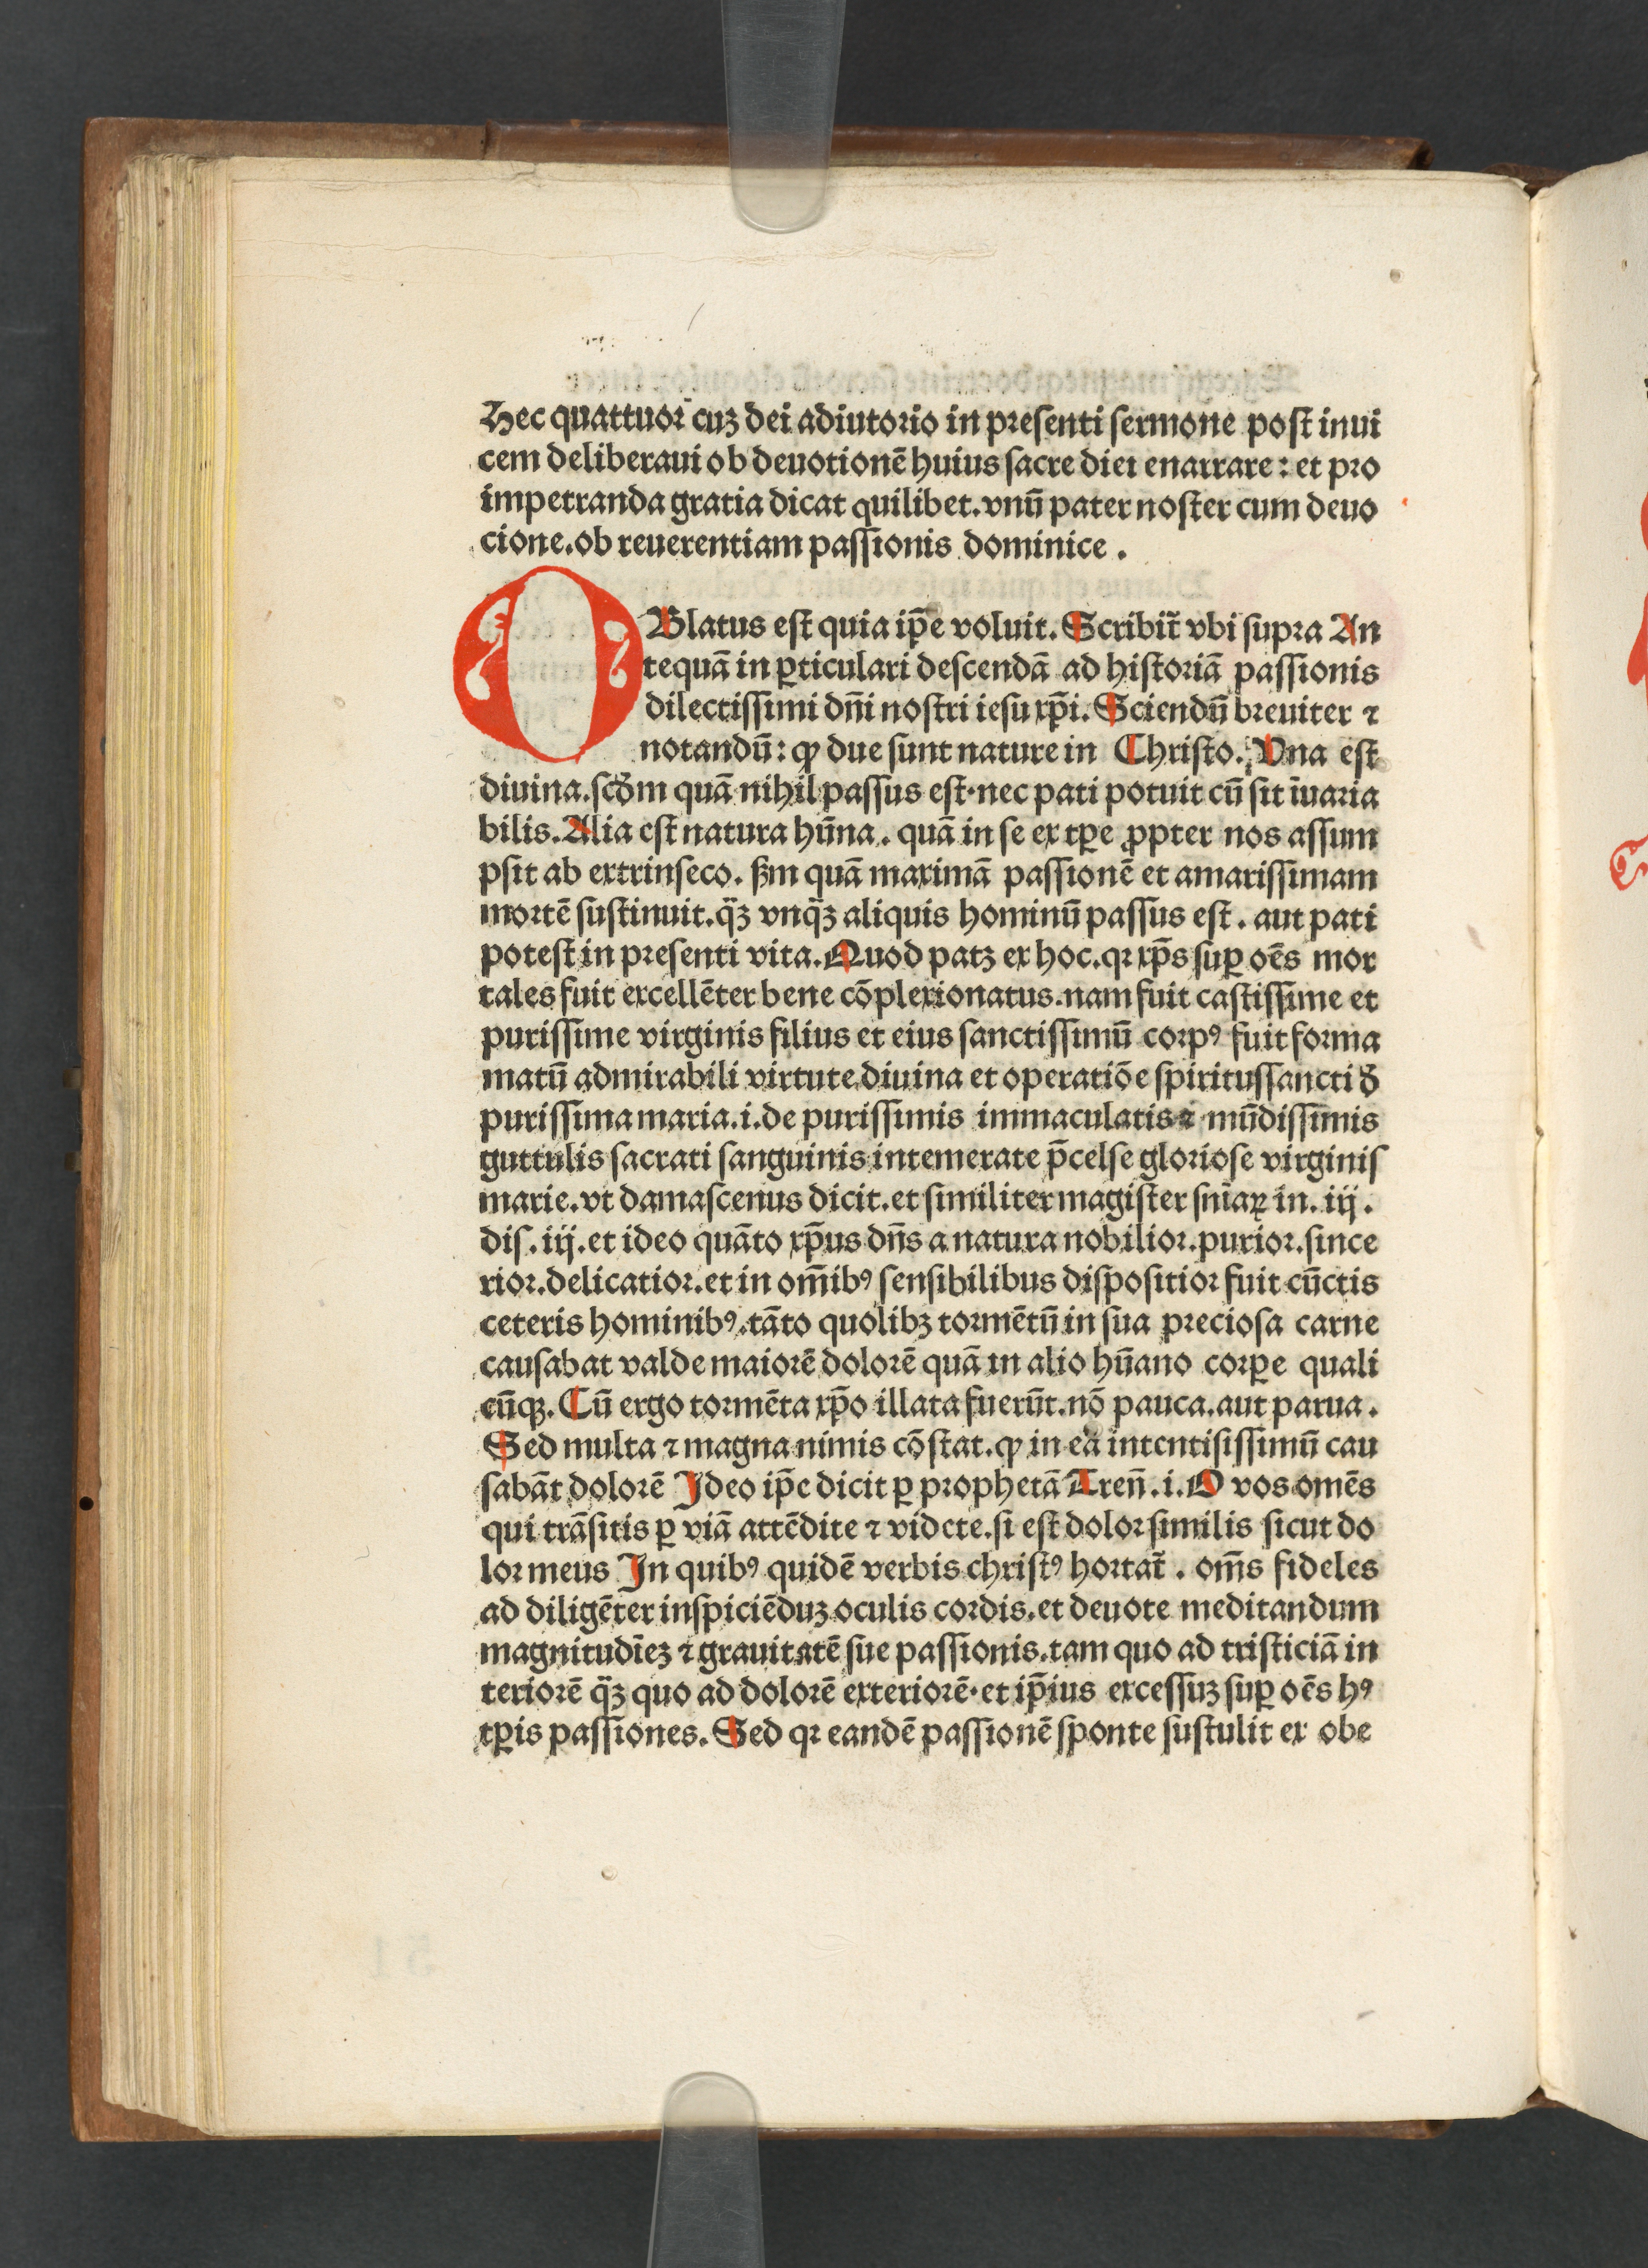 Hec quattuor cuʒ dei adiutorio in presenti sermone post inui
cem deliberaui ob deuotionē huius sacre diei enarrare: et pro
impetranda gratia dicat quilibet. vnū pater noster cum deuo
cione. ob reuerentiam passionis dominice.
OBlatus est quia ip̄e voluit. Scribit̃ vbi supra An
tequā in ꝑticulari descendā ad historiā passionis
dilectissimi dn̄i nostri iesu xp̄i. Sciendū breuiter ⁊
notandū: ꝙ due sunt nature in Christo. Vna est
diuina. scd̄m quā nihil passus est· nec pati potuit cū sit īuaria
bilis. Alia est natura hūna. quā in se ex tꝑe ꝓpter nos assum
psit ab extrinseco. ẜm quā maximā passionē et amarissimam
mortē sustinuit. q̈ʒ vnq̈ʒ aliquis hominū passus est. aut pati
potest in presenti vita. Quod patʒ ex hoc. qꝛ xp̄s suꝑ oēs mor
tales fuit excellēter bene cōplexionatus. nam fuit castissime et
purissime virginis filius et eius sanctissimū corpꝰ fuit forma
matū admirabili virtute diuina et operatiōe spiritussancti đ
purissima maria. i. de purissimis immaculatis ⁊ mūdissimis
guttulis sacrati sanguinis intemerate p̄celse gloriose virginis
marie. vt damascenus dicit. et similiter magister sn̄iaꝝ in. iij.
dis. iij. et ideo quāto xp̄us dn̄s a natura nobilior. purior. since
rior. delicatior. et in om̄ibꝰ sensibilibus dispositior fuit cūctis
ceteris hominibꝰ. tāto quolibʒ tormētū in sua preciosa carne
causabat valde maiorē dolorē quā in alio hūano corꝑe quali
cūqʒ. Cū ergo tormēta xp̄o illata fuerūt. nō pauca. aut parua.
Sed multa ⁊ magna nimis cōstat. ꝙ in eā intentisissimū cau
sabāt dolorē Ideo ip̄e dicit ꝑ prophetā Tren̄. i. O vos omēs
qui trāsitis ꝑ viā attēdite ⁊ videte. si est dolor similis sicut do
lor meus In quibꝰ quidē verbis christꝰ hortat̃. om̄s fideles
ad diligēter inspiciēduʒ oculis cordis. et deuote meditandum
magnitudīeʒ ⁊ grauitatē sue passionis. tam quo ad tristiciā in
teriorē q̈ʒ quo ad dolorē exteriorē· et ip̄ius excessuʒ suꝑ oēs hꝰ
tꝑis passiones. Sed qꝛ eandē passionē sponte sustulit ex obe